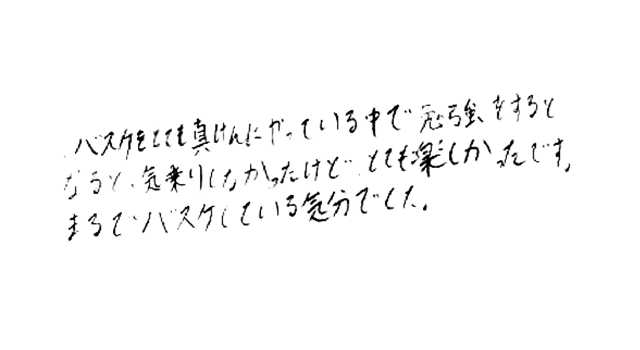 バスケをとても真けんにやっている中で勉強をすると
なると、気乗りしなかったけど、とても楽しかったです。
まるでバスケしている気分でした。